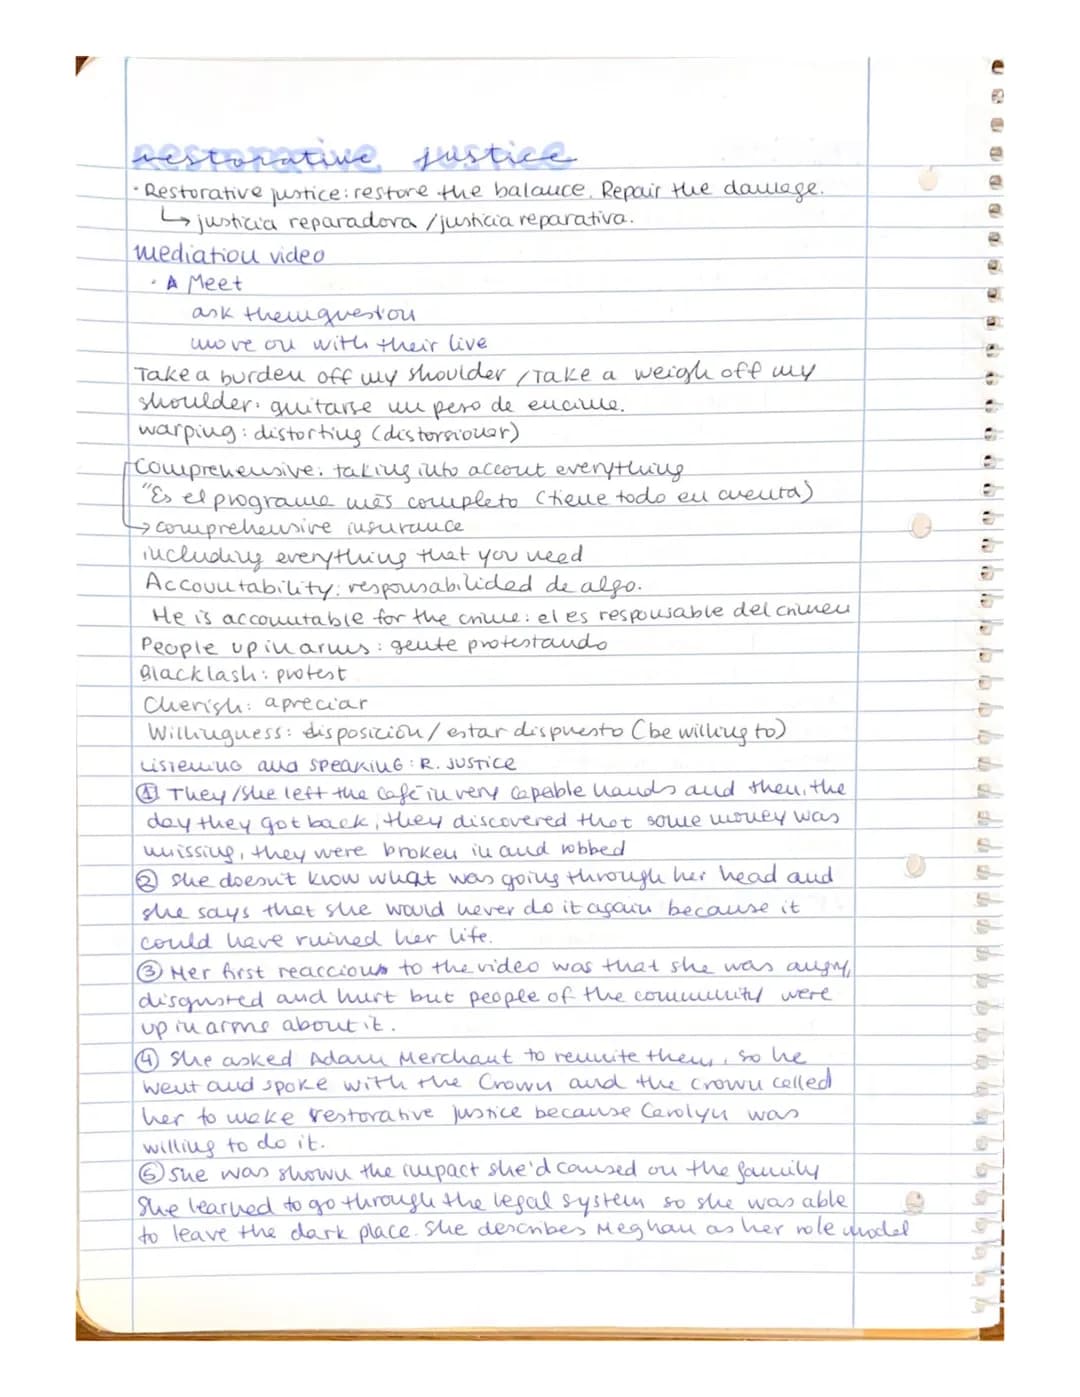 restorative justice
· Restorative justice: restore the balance. Repair the damage.
↳ justicia reparadora / justicia reparativa.
mediation video
· A Meet
ask them question
move on with their live
Take a burden off my shoulder / Take a weigh off my
shoulder: quitarse un peso de encima.
warping: distorting (distorsionar)
Comprehensive: taking into accout everything
"Es el programa más completo (tiene todo en cuenta)
→ comprehensive insurance
including everything that you need
Accountability: responsabilidad de algo.
He is accountable for the crime: el es responsable del crimen
People up in arms: gente protestando
Blacklash: protest
Cherish: apreciar
Willinguess: disposición / estar dispuesto (be willing to)
LISTENING and SPEAKING: R. JUSTICE
① They/She left the cafe in very capable hands and then, the
day they got back, they discovered that some money was
missing, they were broken in and robbed
② She doesn't know what was going through her head and
she says that she would never do it again because it
could have ruined her life.
③ Her first reaccions to the video was that she was angry,
disgusted and hurt but people of the community were
up in arms about it.
④ She asked Adam Merchant to reunite them, so he
went and spoke with the Crown and the crown called
her to make restorative justice because Carolyn was
willing to do it.
⑤ She was shown the impact she'd caused on the family
She learned to go through the legal system so she was able
to leave the dark place. She describes Meghan as her role model